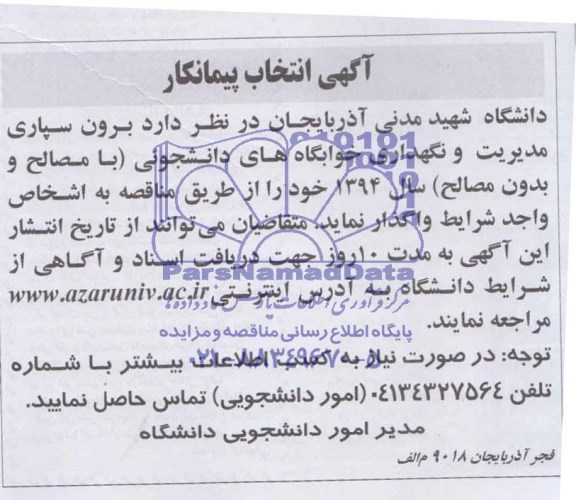 آگهی انتخاب پیمانکار
دانشگاه شهید مدنی آذربایجان در نظر دارد برون سپاری
مدیریت و نگهداری خوابگاه های دانشجوئی (با مصالح و
بدون مصالح) سال ۱۳۹۴ خود را از طریق مناقصه به اشخاص
واجد شرایط واگذار نماید. متقاضیان می توانند از تاریخ انتشار
این آگهی به مدت ۱۰ روز جهت دریافت اسناد و آگاهی از
ParsNamadData
شرایط دانشگاه به آدرس اینترنتی www.azaruniv.ac.ir
مرکز فرآوری اطلاعات پارس نماد داده ها
مراجعه نمایند.
پایگاه اطلاع رسانی مناقصه و مزایده
توجه: در صورت نیاز به کسب اطلاعات بیشتر با شماره
۰۲۱-۸۸۳۴۹۶۷۰-۵
تلفن ۰۴۱۳۴۳۲۷۵۶۴ (امور دانشجویی) تماس حاصل نمایید.
مدیر امور دانشجویی دانشگاه
فجر آذربایجان ۹۰۱۸ م/الف